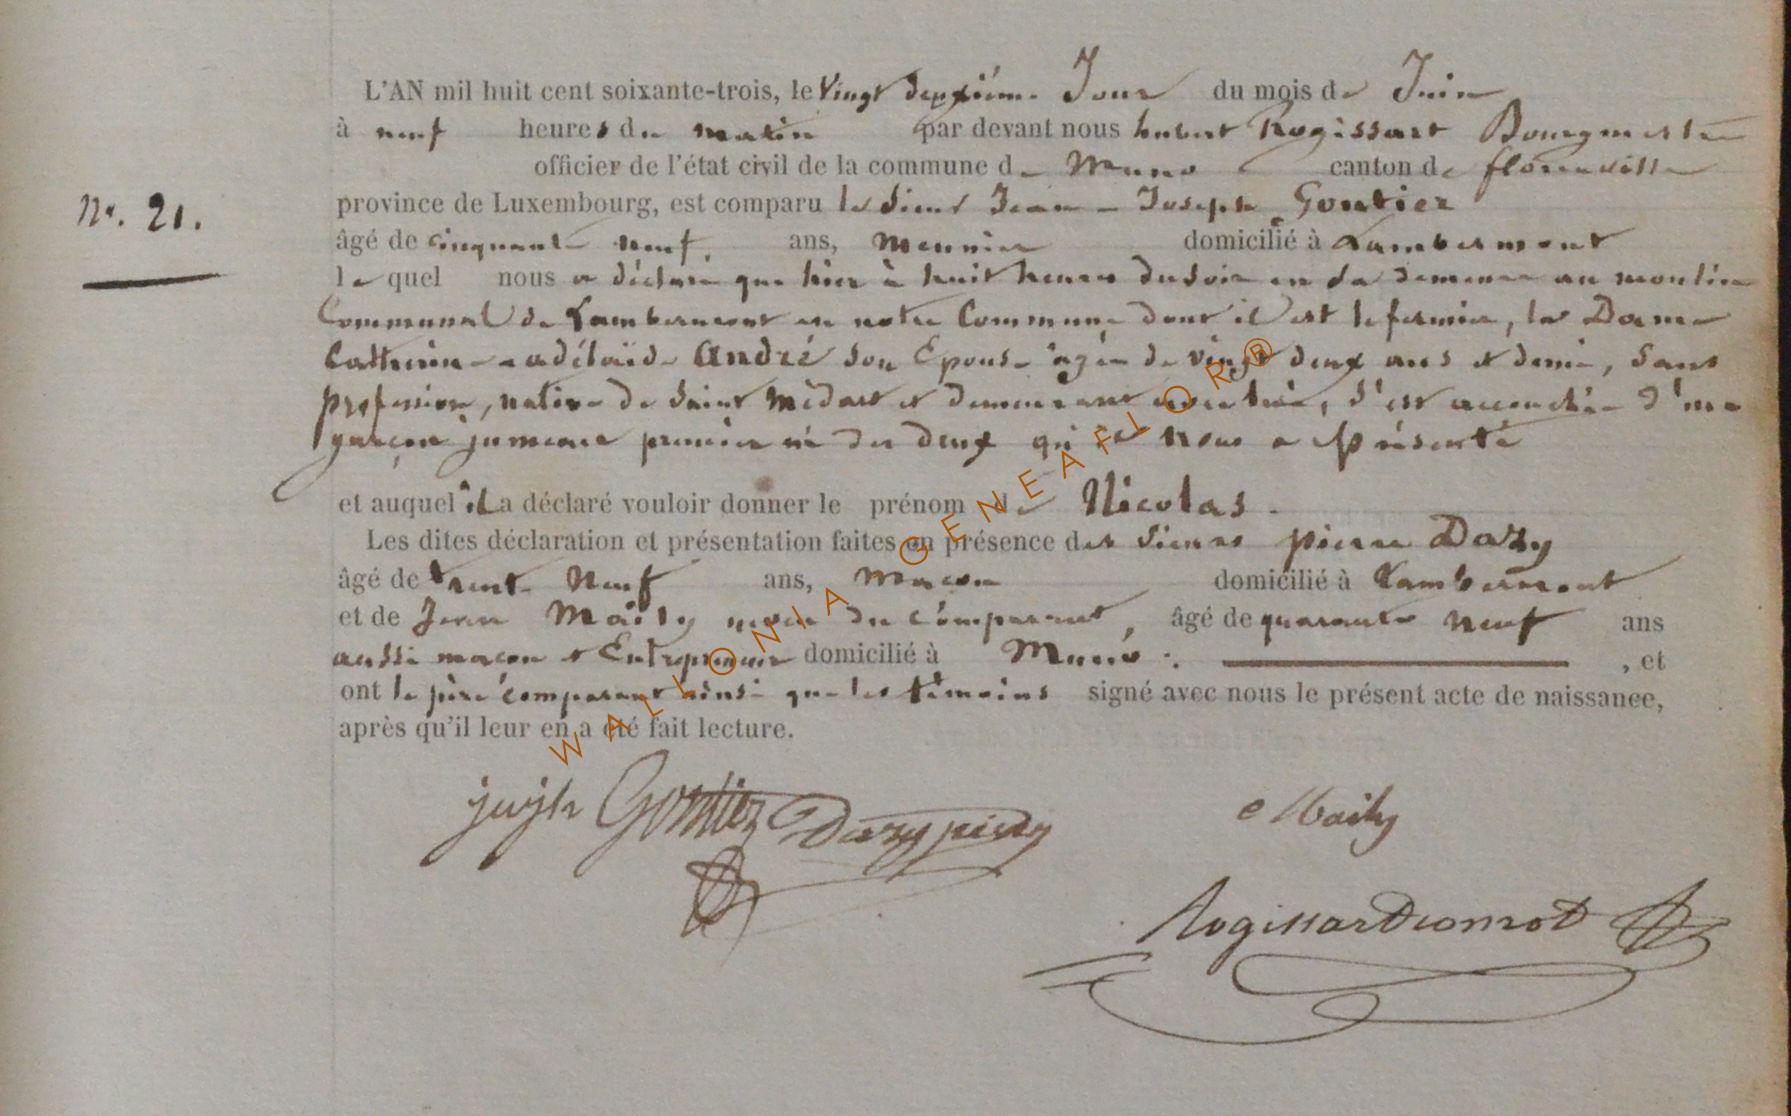 L'AN mil huit cent soixante-trois, le vingt deuxième Jour du mois de Juin
à neuf heures du matin par devant nous hubert Rogissart Bourgmestre
officier de l'état civil de la commune de Muno canton de florenville
Nº. 21.
province de Luxembourg, est comparu le Sieur Jean-Joseph Gontier
âgé de cinquante neuf ans, Meunier domicilié à Lambermont
lequel nous a déclaré que hier à huit heures du soir en sa demeure au moulin
Communal de Lambermont en notre Commune dont il est le fermier, la Dame
Catherine adélaïde André son Epouse âgée de vingt deux ans et demie, sans
profession, native de Saint Médart et demeurant avec lui, s'est accouchée d'un
garçon jumeau premier né des deux qu'il nous a présenté
et auquel il a déclaré vouloir donner le prénom de Nicolas.
Les dites déclaration et présentation faites en présence des Sieurs pierre Dazy
âgé de trente Neuf ans, Macon domicilié à Lambermont
et de Jean Mailly du Comparant, âgé de quarante neuf ans
aussi macon et Entrepreneur domicilié à Muno. , et
ont le père comparant ainsi que les témoins signé avec nous le présent acte de naissance,
après qu'il leur en a été fait lecture.
WALLONIA GENEAFLOR®
Gontiez Dazy pierre Mailly